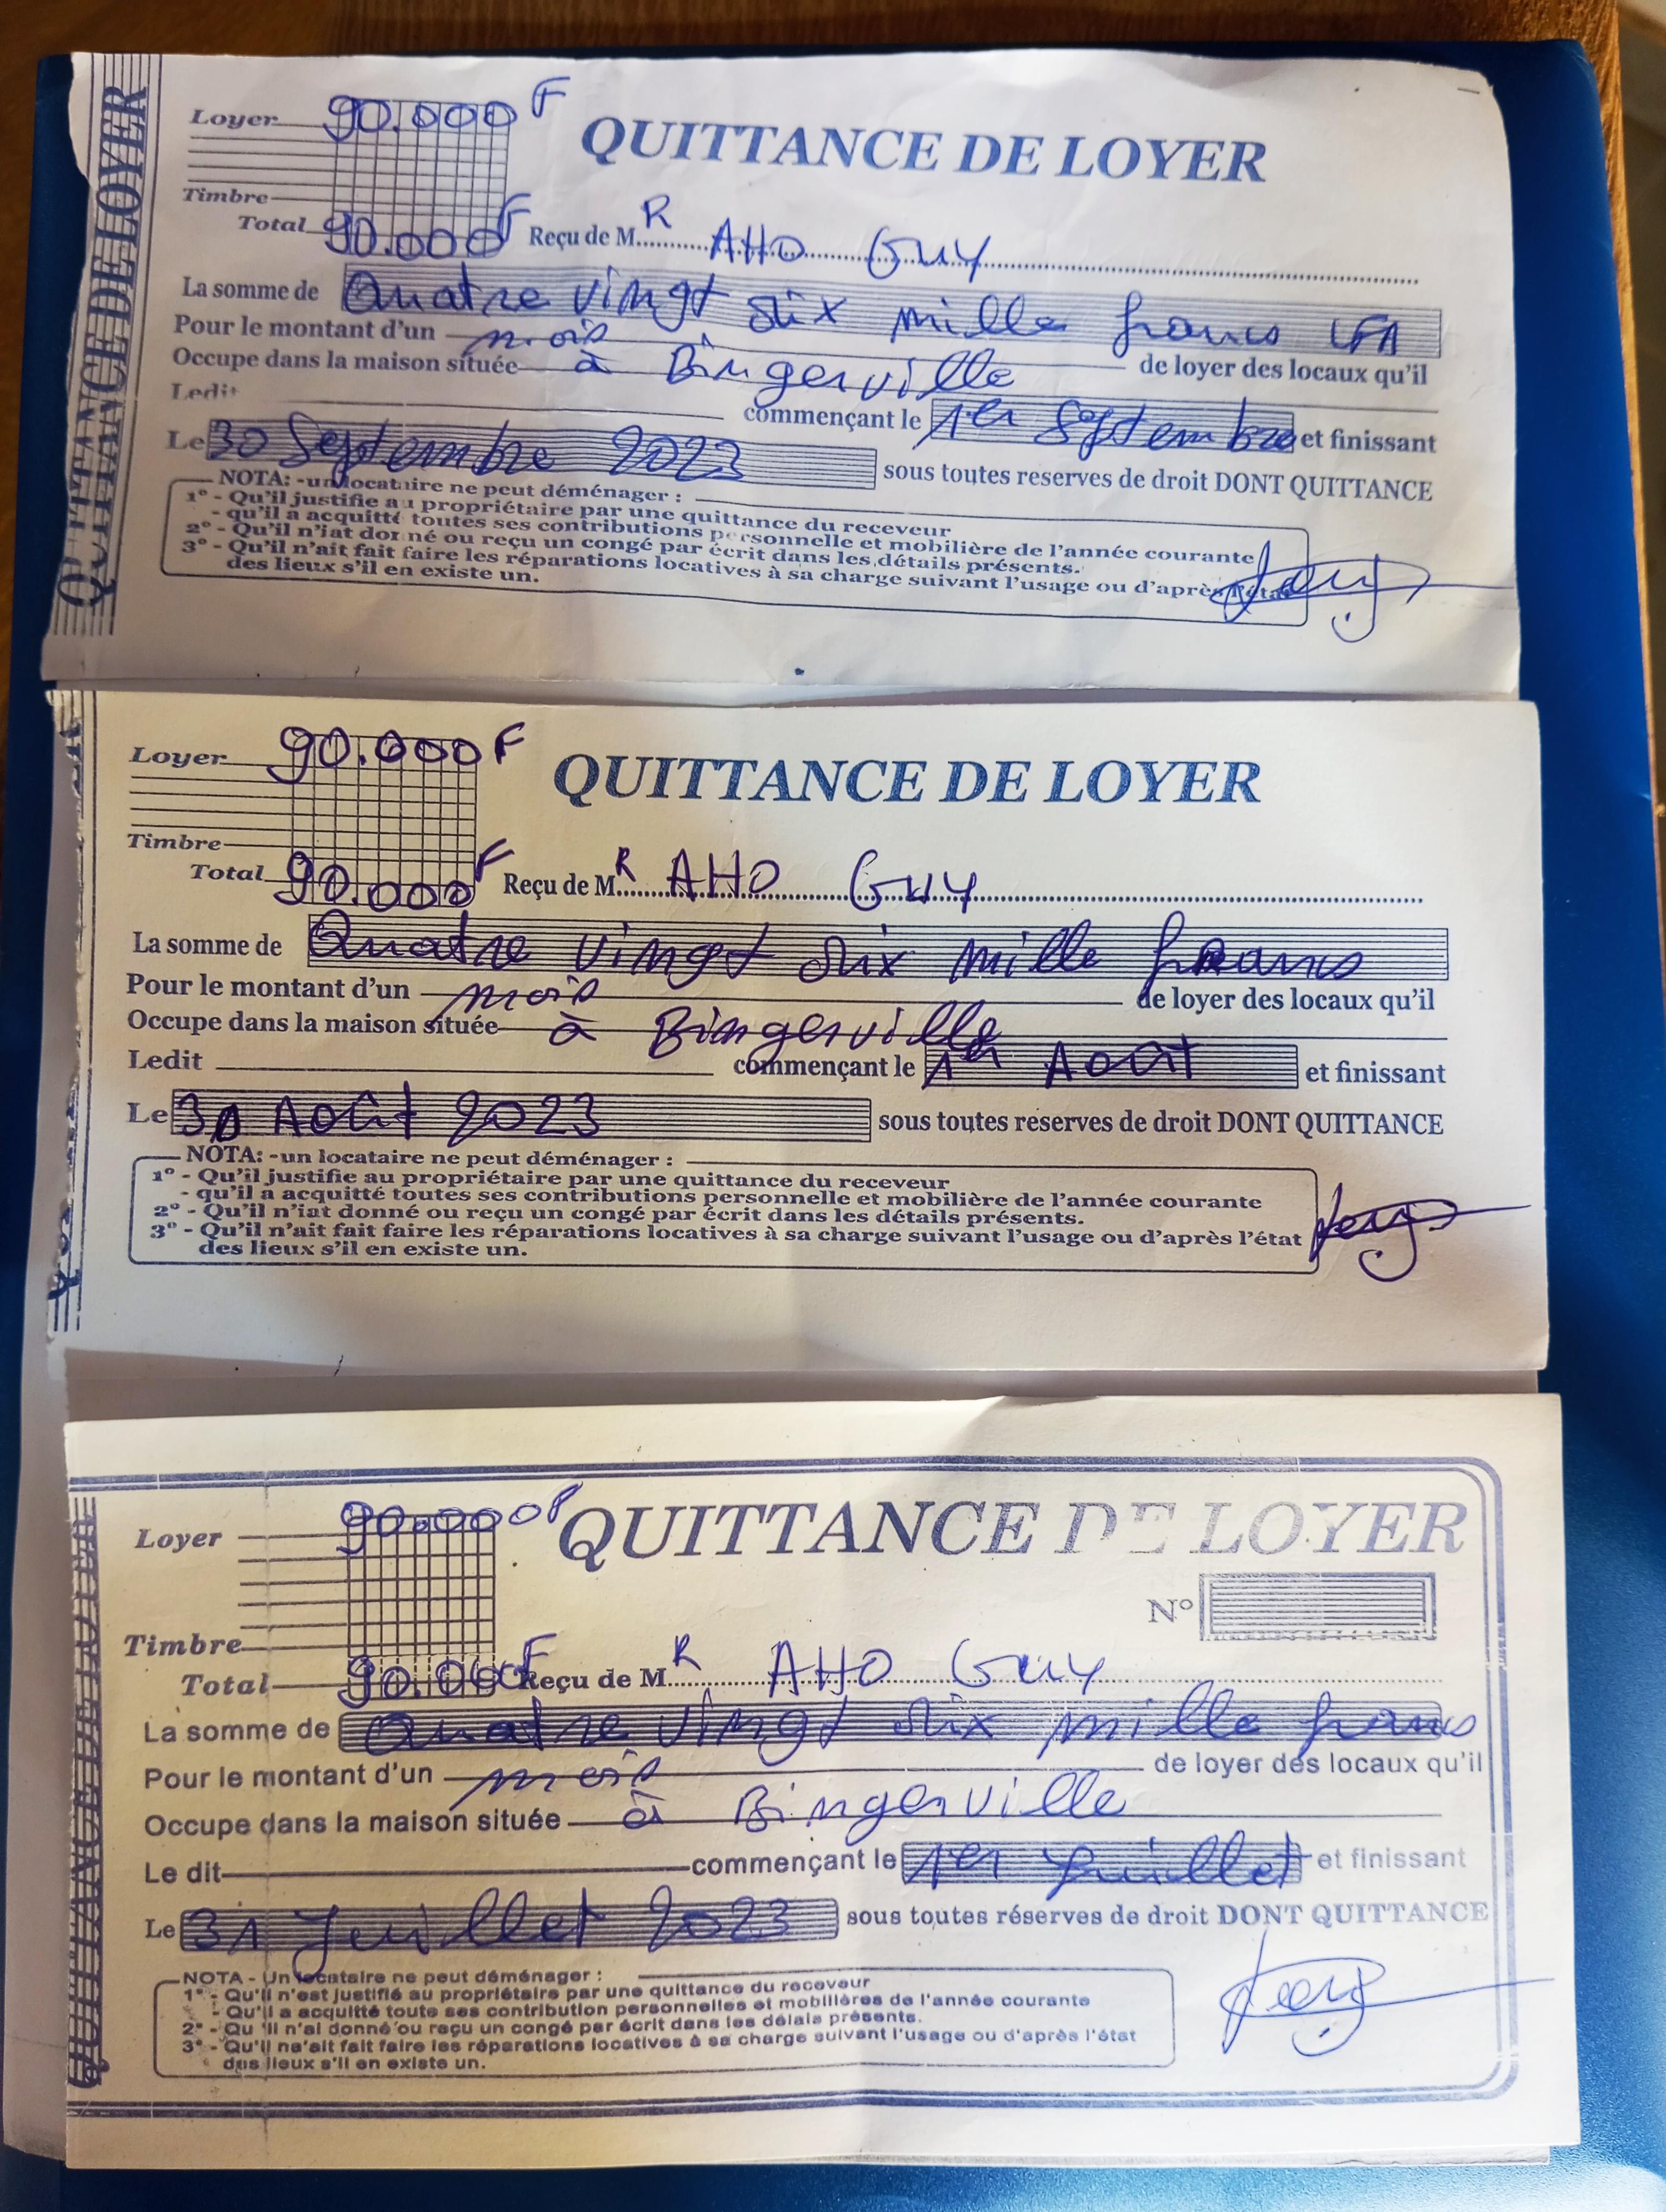 QUITTANCE DE LOYER
Loyer 90.000 F
QUITTANCE DE LOYER
Timbre
Total 90.000 F Reçu de M.R AHO GUY
La somme de Quatre vingt dix mille francs CFA
Pour le montant d'un mois de loyer des locaux qu'il
Occupe dans la maison située à Bingerville
Ledit commençant le 1er Septembre et finissant
Le 30 Septembre 2023 sous toutes reserves de droit DONT QUITTANCE
NOTA: -un locataire ne peut déménager :
1° - Qu'il justifie au propriétaire par une quittance du receveur
- qu'il a acquitté toutes ses contributions personnelle et mobilière de l'année courante
2° - Qu'il n'iat donné ou reçu un congé par écrit dans les détails présents.
3° - Qu'il n'ait fait faire les réparations locatives à sa charge suivant l'usage ou d'après l'état
des lieux s'il en existe un.
Loyer 90.000 F
QUITTANCE DE LOYER
Timbre
Total 90.000 F Reçu de M.R AHO GUY
La somme de Quatre vingt dix mille francs
Pour le montant d'un mois de loyer des locaux qu'il
Occupe dans la maison située à Bingerville
Ledit commençant le 1er Août et finissant
Le 30 Août 2023 sous toutes reserves de droit DONT QUITTANCE
NOTA: -un locataire ne peut déménager :
1° - Qu'il justifie au propriétaire par une quittance du receveur
- qu'il a acquitté toutes ses contributions personnelle et mobilière de l'année courante
2° - Qu'il n'iat donné ou reçu un congé par écrit dans les détails présents.
3° - Qu'il n'ait fait faire les réparations locatives à sa charge suivant l'usage ou d'après l'état
des lieux s'il en existe un.
Loyer 90.000 F
QUITTANCE DE LOYER
N°
Timbre
Total 90.000 F Reçu de M.R AHO GUY
La somme de Quatre vingt dix mille francs
Pour le montant d'un mois de loyer des locaux qu'il
Occupe dans la maison située à Bingerville
Le dit commençant le 1er Juillet et finissant
Le 31 Juillet 2023 sous toutes réserves de droit DONT QUITTANCE
NOTA - Un locataire ne peut déménager :
1° - Qu'il n'est justifié au propriétaire par une quittance du receveur
- Qu'il a acquitté toute ses contribution personnelles et mobilières de l'année courante
2° - Qu 'il n'ai donné ou reçu un congé par écrit dans les délais présents.
3° - Qu'il ne'ait fait faire les réparations locatives à sa charge suivant l'usage ou d'après l'état
des lieux s'il en existe un.